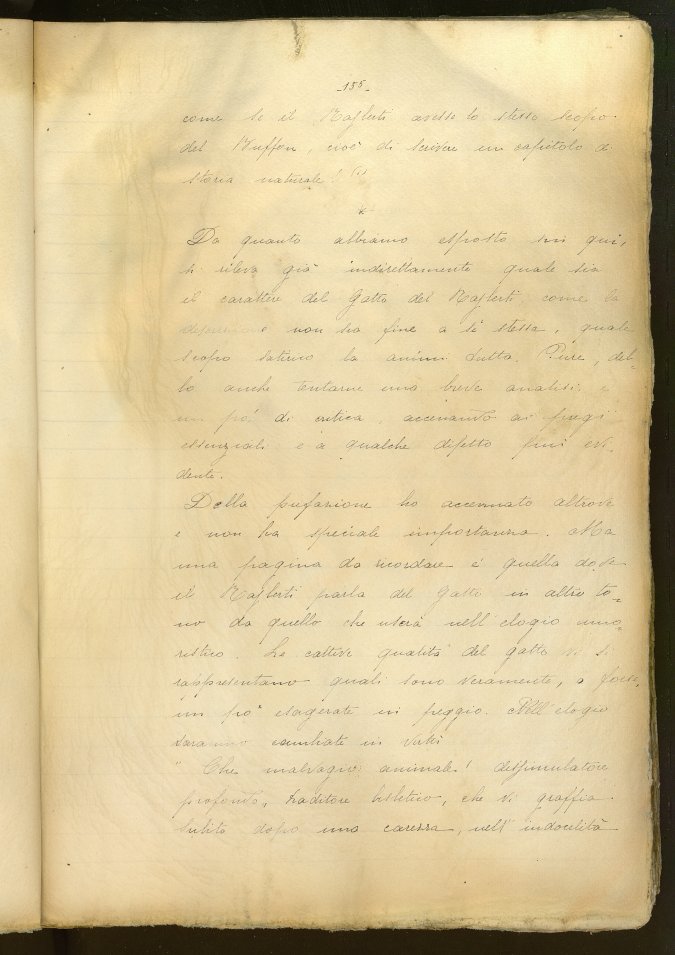 _155_
come se il Rajberti avesse lo stesso scopo
del Buffon, cioè di scrivere un capitolo di
storia naturale! (1)
*
Da quanto abbiamo esposto sin qui,
si rileva già indirettamente quale sia
il carattere del Gatto del Rajberti, come la
non ha fine a sè stessa, quale
scopo la animi tutta. Pure, deb-
bo anche tentarne una breve analisi e
un po' di critica, accennando ai pregi
essenziali e a qualche difetto più evi-
dente.
Della prefazione ho accennato altrove
e non ha speciale importanza. Ma
una pagina da ricordare è quella dove
il Rajberti parla del Gatto in altro to-
no da quello che userà nell'elogio umo-
ristico. Le cattive qualità del gatto vi si
rappresentano quali sono veramente, o forse,
un po' esagerate in peggio. Nell'elogio
saranno cambiate in virtù
" Che malvagio animale! dissimulatore
profondo, traditore, che vi graffia
subito dopo una carezza, nell'indocilità